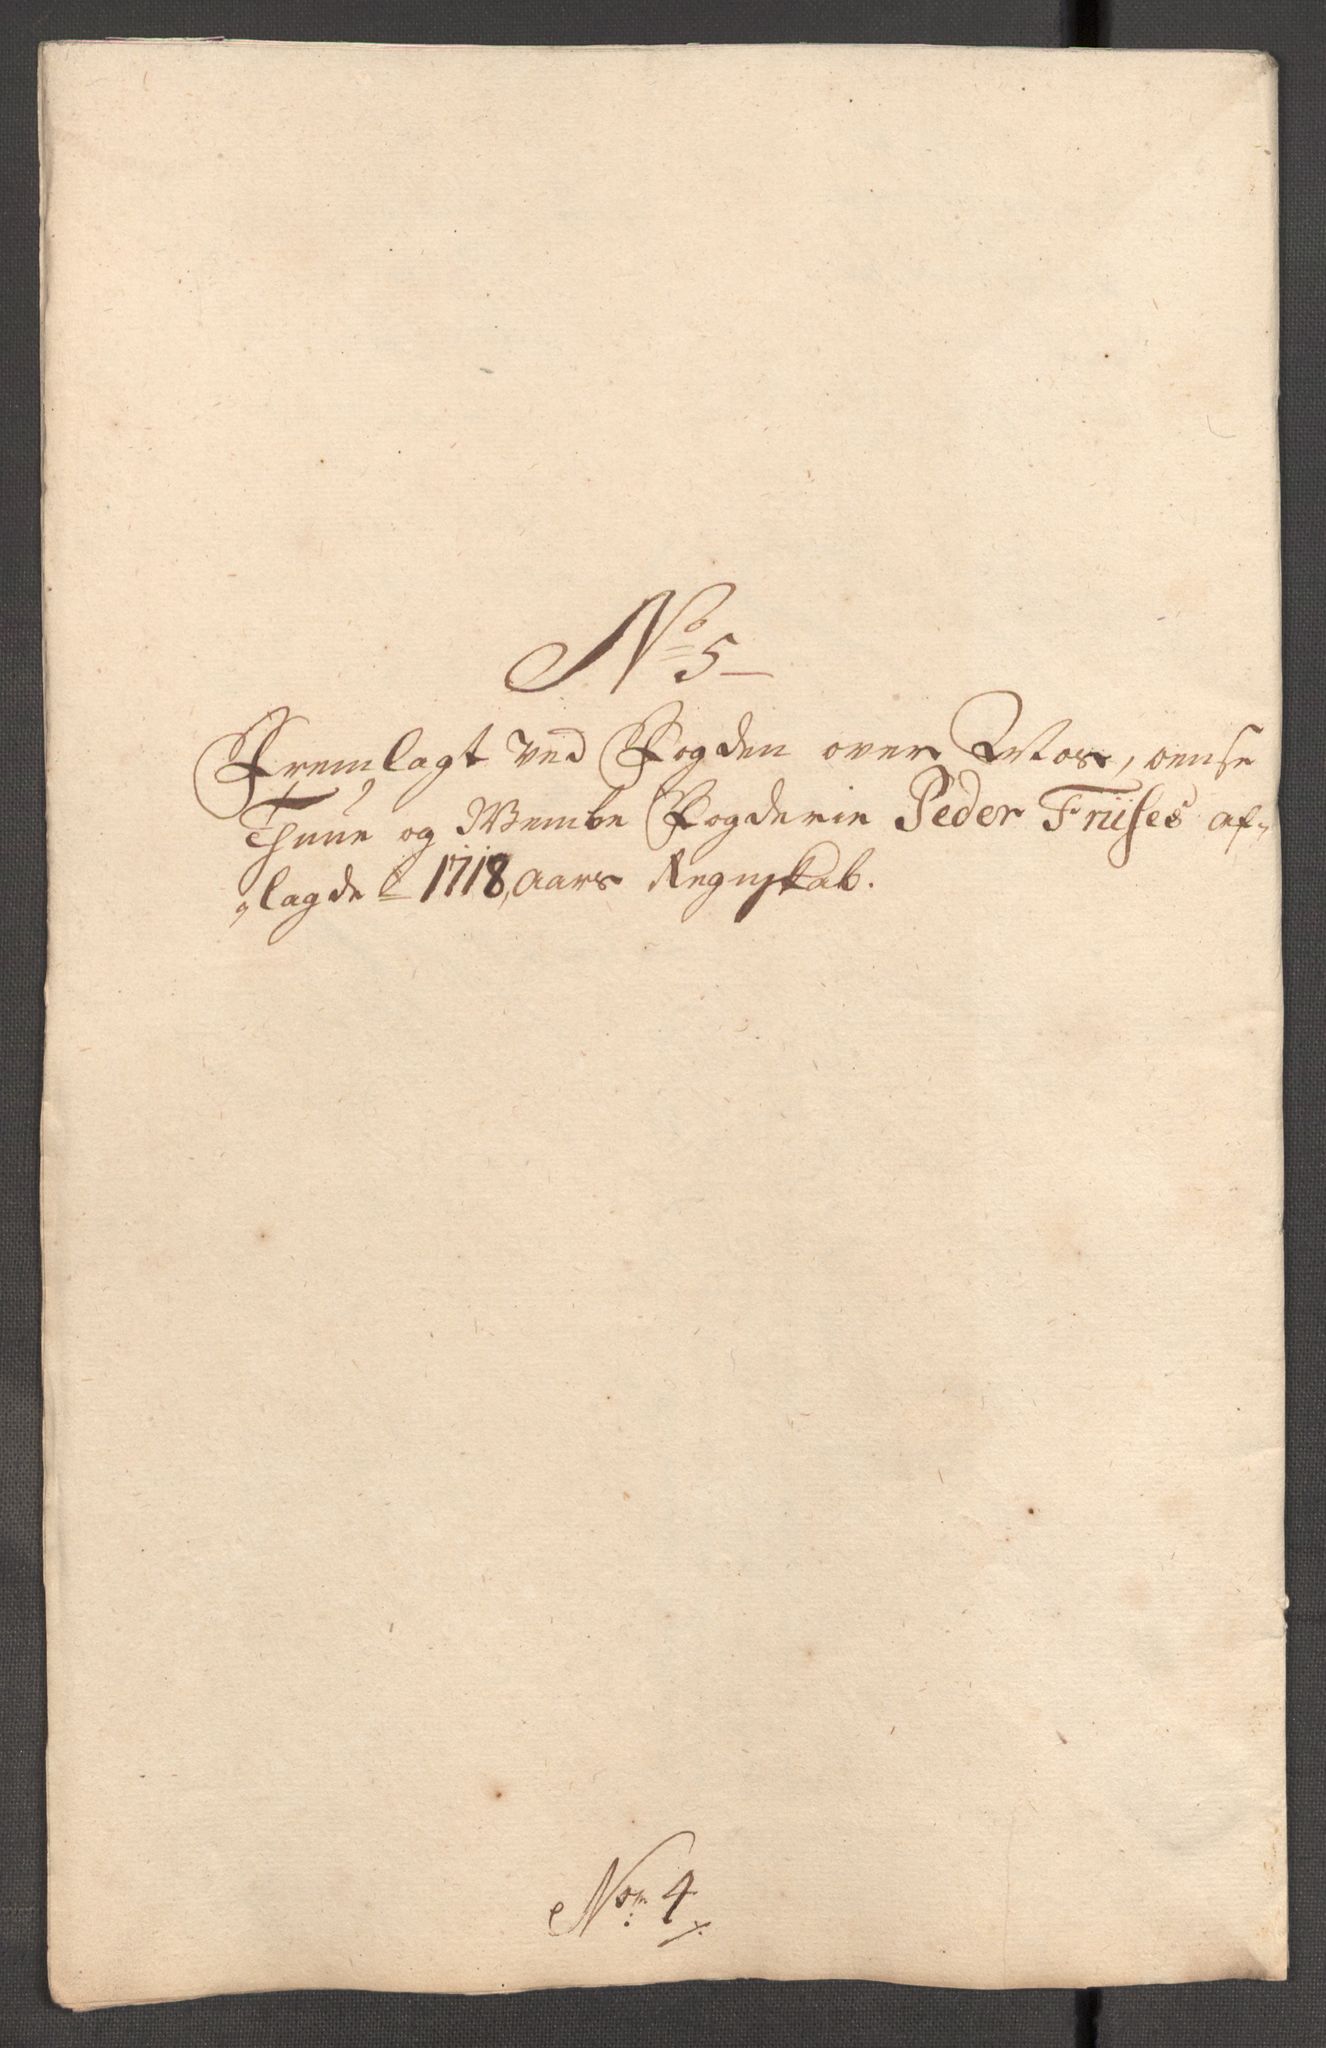 No 5
Fremlagt ved Fogden over Moss, onsøe
Thune og Wembe Fogderie Peder Friises af-
lagde 1718, aars Regnskab.
No: 4